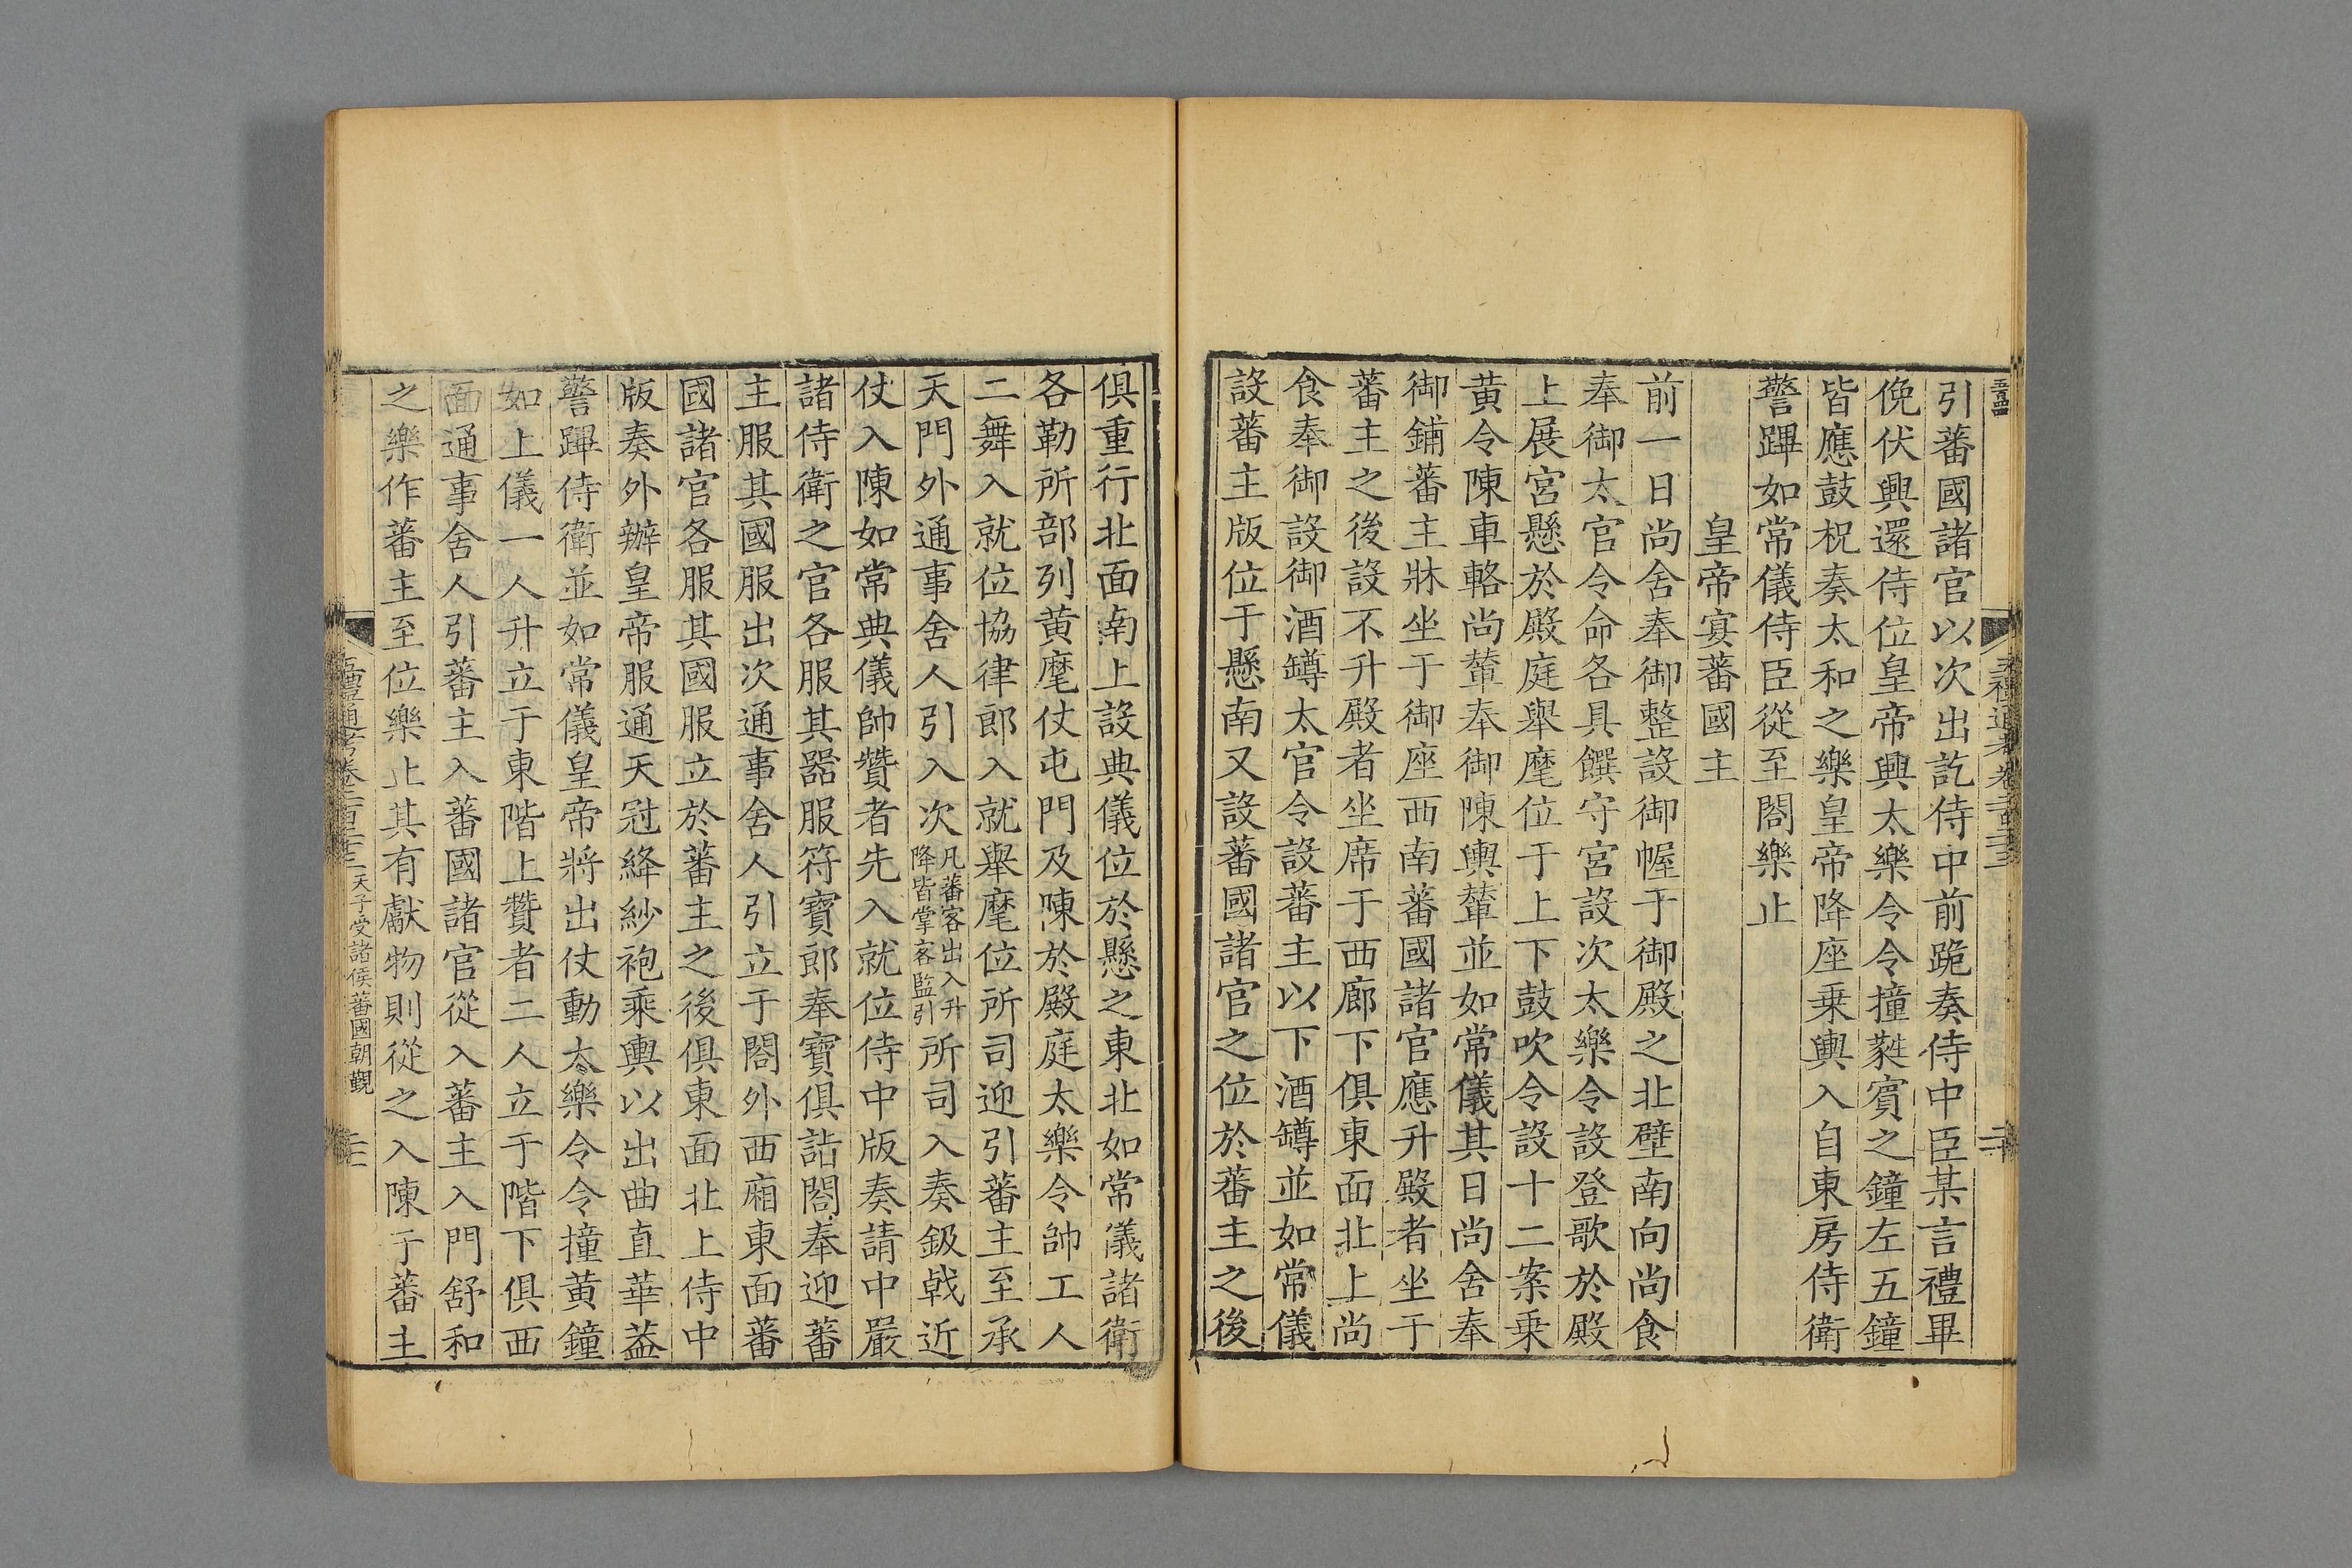 引蕃國諸官以次出訖侍中前跪奏侍中臣某言禮畢
俛伏興還侍位皇帝興太樂令令撞蕤賓之鐘左五鐘
皆應鼓柷奏太和之樂皇帝降座乗輿入自東房侍衛
警蹕如常儀侍臣從至閤樂止
皇帝宴蕃國主
前一日尚舍奉御整設御幄于御殿之北壁南向尚食
奉御太官令命各具饌守宮設次太樂令設登歌於殿
上展宮懸於殿庭舉麾位于上下鼓吹令設十二案乗
黄令陳車輅尚輦奉御陳輿輦並如常儀其日尚舍奉
御鋪蕃主牀坐于御座西南蕃國諸官應升殿者坐于
蕃主之後設不升殿者坐席于西廊下俱東面北上尚
食奉御設御酒罇太官令設蕃主以下酒罇並如常儀
設蕃主版位于懸南又設蕃國諸官之位於蕃主之後
俱重行北面南上設典儀位於懸之東北如常儀諸衛
各勒所部列黄麾仗屯門及陳於殿庭太樂令帥工人
二舞入就位協律郎入就舉麾位所司迎引蕃主至承
天門外通事舍人引入次凡蕃客出入升降皆掌客監引所司入奏鈒戟近
仗入陳如常典儀帥贊者先入就位侍中版奏請中嚴
諸侍衛之官各服其器服符寶郎奉寶俱詣閤奉迎蕃
主服其國服出次通事舍人引立于閤外西廂東面蕃
國諸官各服其國服立於蕃主之後俱東面北上侍中
版奏外辦皇帝服通天冠絳紗袍乘輿以出曲直華蓋
警蹕侍衛並如常儀皇帝將出仗動太樂令令撞黄鐘
如上儀一人升立于東階上贊者二人立于階下俱西
面通事舍人引蕃主入蕃國諸官從入蕃主入門舒和
之樂作蕃主至位樂止其有獻物則從之入陳于蕃主
五禮通考卷二百二十三 天子受諸侯蕃國朝覲